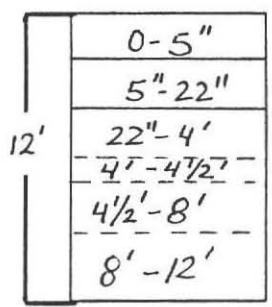 0-5"
5"-22"
12'
22"-4'
4'-4½'
4½'-8'
8'-12'